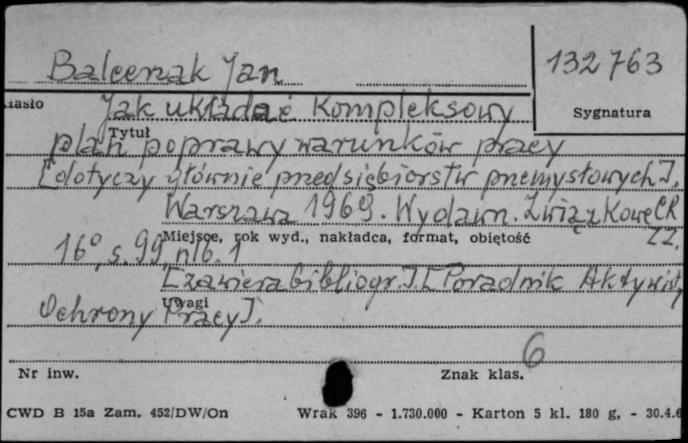 Balcerzak Jan
132763
Hasło
Jak układać kompleksowy
Sygnatura
Tytuł
plan poprawy warunków pracy
[dotyczy głównie przedsiębiorstw przemysłowych].
Warszawa 1969. Wydawn. Związkowe CR
ZZ.
Miejsce, rok wyd., nakładca, format, objętość
16°, s. 99 nlb. 1
[zawiera bibliogr.] [Poradnik Aktywisty
Uwagi
Ochrony Pracy].
6
Nr inw.
Znak klas.
CWD B 15a Zam. 452/DW/On Wrak 396 - 1.730.000 - Karton 5 kl. 180 g, - 30.4.6